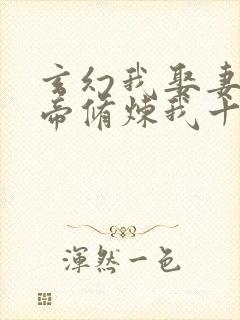 玄幻我娶妻
帝脩煉我十
渾然一色